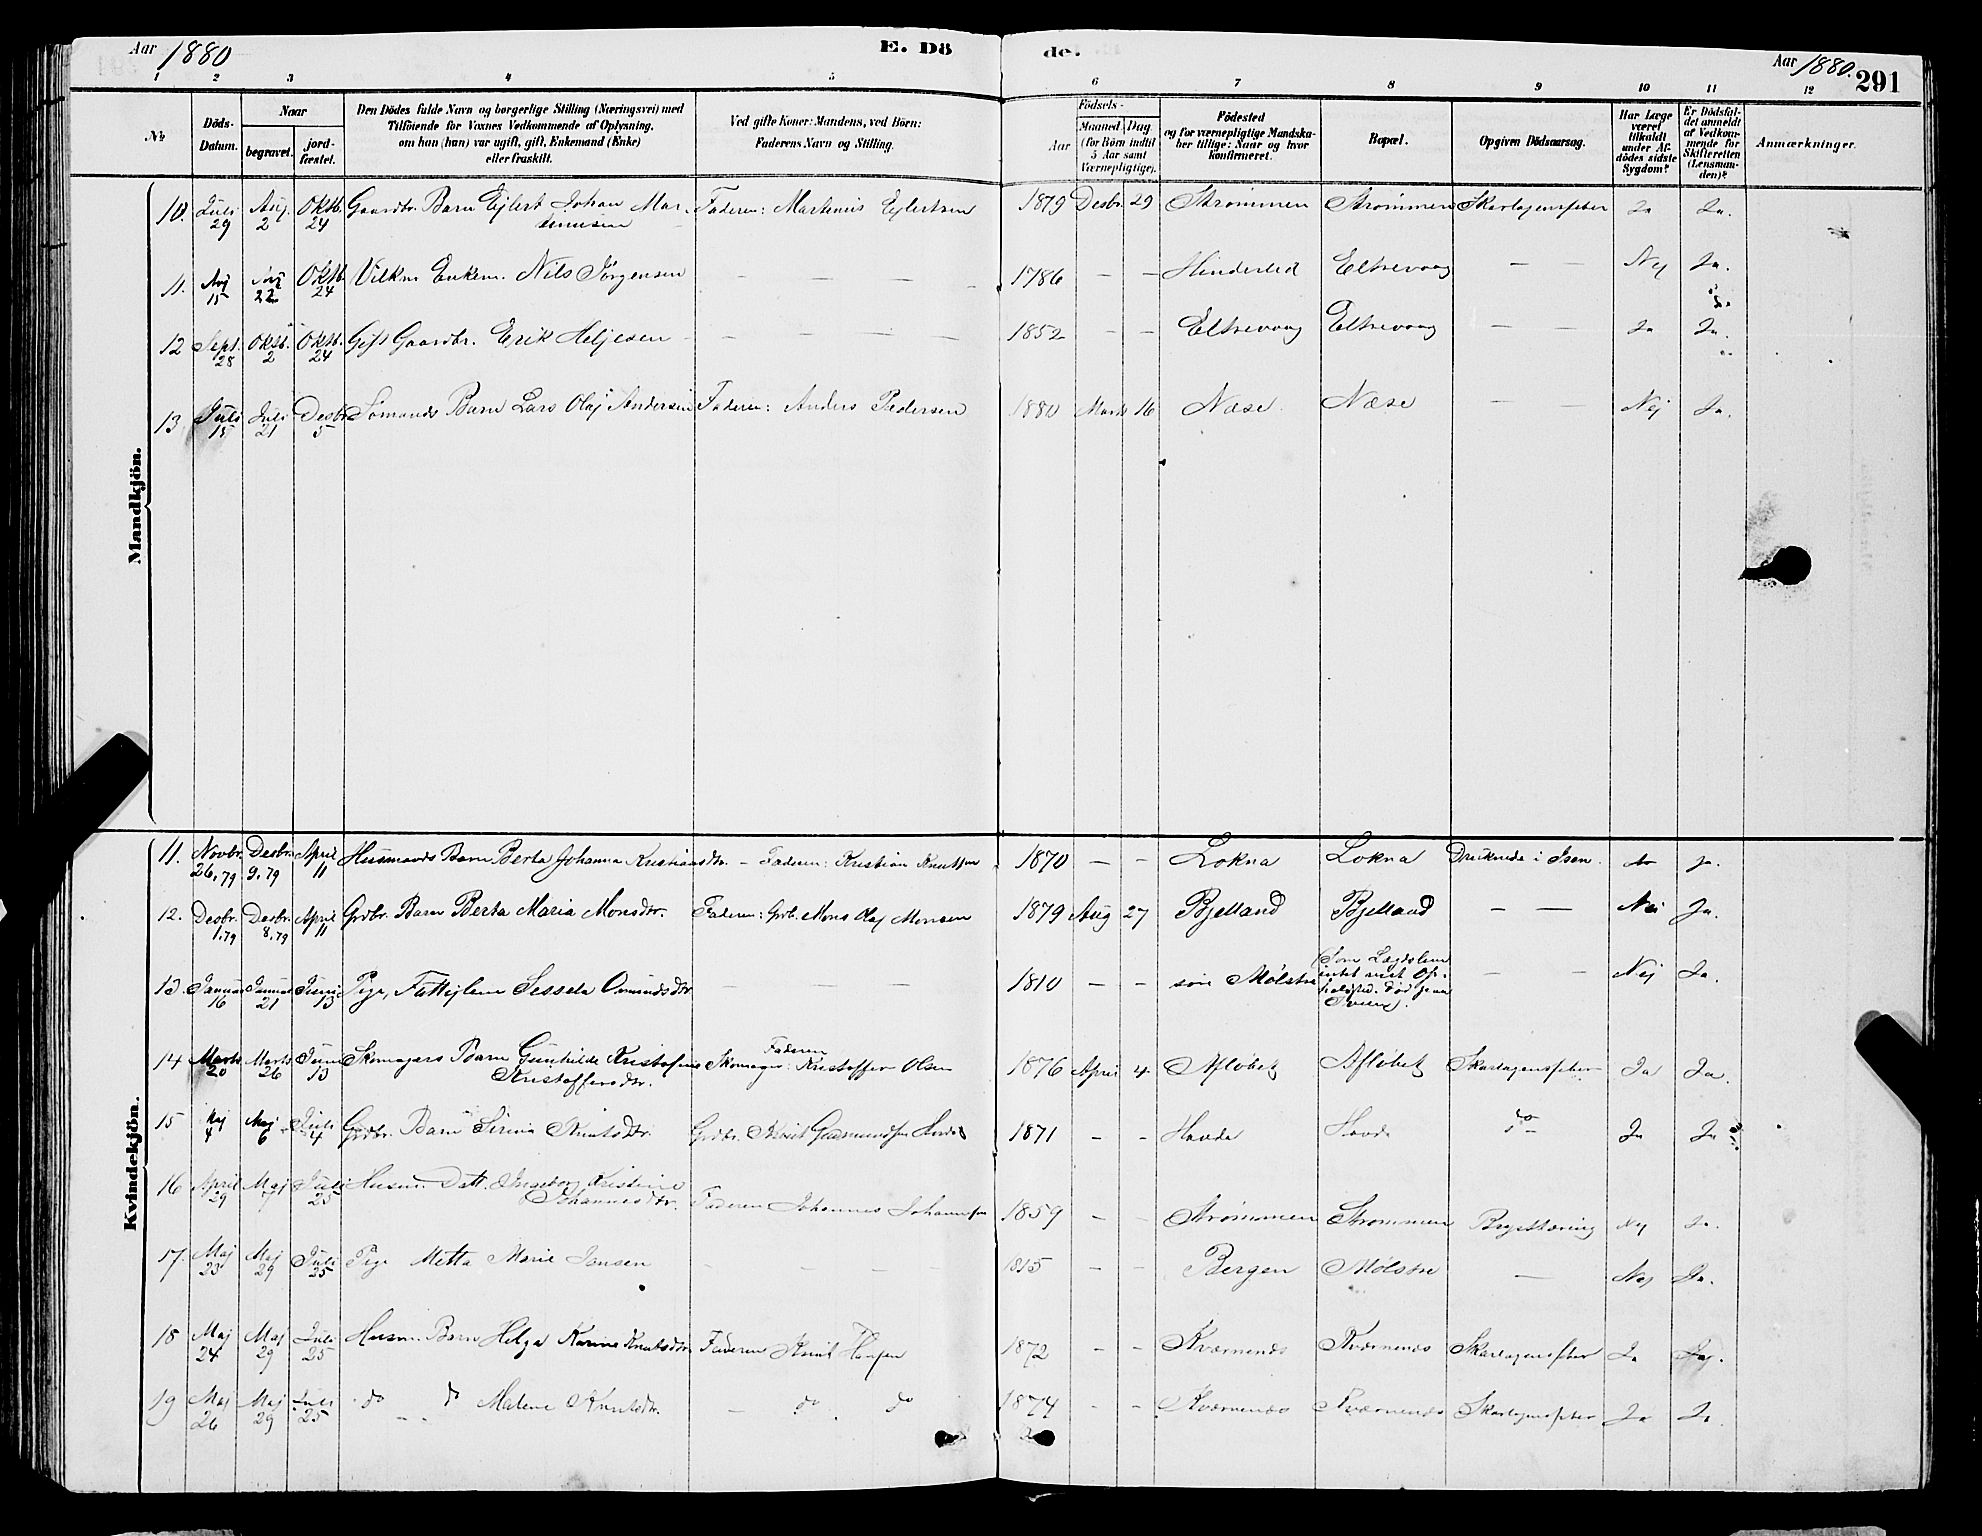 Aar 1880
E. Dö
de.
Aar 1880.
291
1 2 3 4 5 6 7 8 9 10 11 12
No
Döds-Datum.
Naar
begravet.
jord-fæstet.
Den Dödes fulde Navn og borgerlige Stilling (Næringsvei) med
Tilföiende for Voxnes Vedkommende af Oplysning,
om han (hun) var ugift, gift, Enkemand (Enke)
eller fraskilt.
Ved gifte Koner: Mandens, ved Börn:
Faderens Navn og Stilling.
Födsels-
Aar
Maaned
Dag
(for Börn indtil
5 Aar samt
Værnepligtige).
Födested
og for værnepligtige Mandska-
ber tillige: Naar og hvor
konfirmeret.
Bopæl.
Opgiven Dödsaarsag.
Har Læge
været
tilkaldt
under Af-
dödes sidste
Sygdom?
Er Dödsfal-
det anmeldt
af Vedkom-
mende for
Skifteretten
(Lensman-
den)?
Anmærkninger.
Mandkjön.
10. Juli 29 Aug. 2 Oktb. 24 Gaardbr. Barn Ejlert Johan Mar- Faderen: Martinius Ejlertsen 1879 Desbr. 29 Strømmen Strømmen Skarlagensfeber Ja Ja.
tinusen
11. Aug 15 Aug 22 Oktb. 24 Vilkm Enkem. Nils Jørgensen — — — 1786 — — Hinderlid Eltrevaag — — Nej Ja.
12 Sept. 28 Oktb. 2 Oktb. 24 Gift Gaardbr. Erik Heljesen — — — 1852 — — Eltrevaag Eltrevaag — — Ja Ja.
13 Juli 15 Juli 21 Desbr 5 Sømands Barn Lars Olaj Andersen Faderen: Anders Pedersen 1880 Marts 16 Næse Næse — — Nej Ja.
Kvindekjön.
11. Novbr. 26.79 Desbr. 9.79 April 11 Husmands Barn Berta Johanna Kristiansdtr. – Faderen: Kristian Knutsen 1870 — — Lokna Lokna Druknede i Isen. Ja.
12. Desbr. 1.79 Desbr. 8.79 April 11 Grdbr. Barn Berta Maria Monsdtr. Faderen: Grb. Mons Olaj Monsen 1879 Aug 27 Bjelland Bjelland — — Nei Ja.
13. Januar 16 Januar 21 Juni 13 Pige, Fattiglem Sessela Omundsdtr — — — 1810 — — Mølstre
Som Lægdslem
intet vist Op-
holdsted.
— — Nej Ja.
14 Marts 20 Marts 26 Juni 13 Skomagers Barn Gunhilde Kristofine
Kristoffersdtr.
Faderen
Skomager: Kristoffer Olsen 1876 April 4. Afløbet Afløbet Skarlagensfeber Ja Ja.
15 Maj 4 Maj 6 Juli 4 Grdbr. Barn Serina Knutsdtr. Grdbr. Knut Gudmundsen 1871 — — Havde Havde do Ja Ja
16 April 29 Maj 7 Juli 25 Husm. Datt. Ingeborg Kristine
Johannesdtr. Faderen Johannes Johannesen 1859 — — Strømmen Strømmen Brysttæring Nej Ja.
17. Maj 23 Maj 29 Juli 25 Pige Metta Marie Jansen — — — 1815 — — Bergen Mølstre — Nej Ja.
18 Maj 24 Maj 29 Juli 25 Husm. Barn Helga Karine Knutsdtr Faderen Knut Hansen 1872 — — Kværnenes Kværnenes Skarlagensfeber Ja
19 Maj 26 Maj 29 Juli 25 do do Malene Knutsdtr. — do do 1874 — — Kværnenes Kværnenes Skarlagensfeber Ja Ja